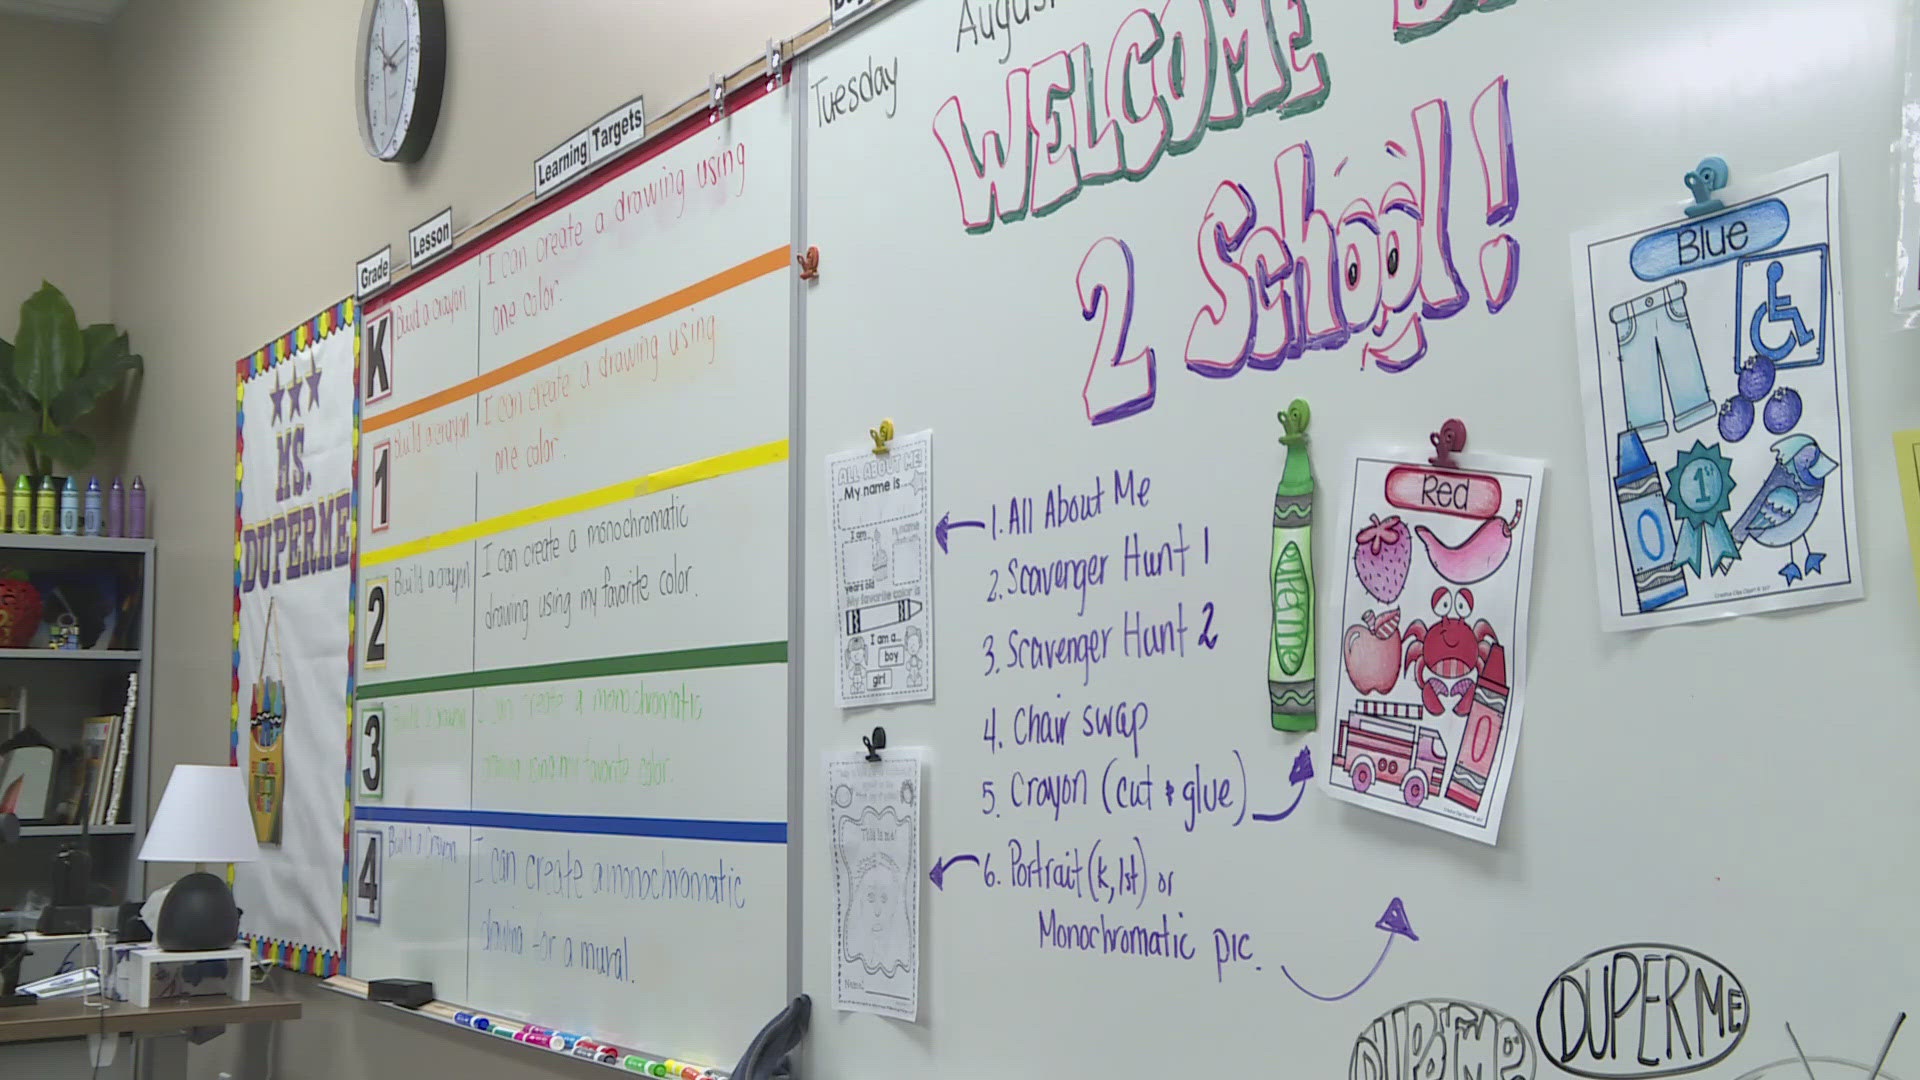 Tuesday
WELCOME
2 School!
Grade
Lesson
Learning Targets
K
Build a crayon
I can create a drawing using
one color.
1
Build a crayon
I can create a drawing using
one color.
2
Build a crayon
I can create a monochromatic
drawing using my favorite color.
3
I can create a monochromatic
drawing using my favorite color.
4
Build a Crayon
I can create a monochromatic
drawing for a mural.
MS.
DUPERME
ALL ABOUT ME!
My name is
I am
years old
My favorite color is
I am a
boy
girl
This is me!
1. All About Me
2. Scavenger Hunt 1
3. Scavenger Hunt 2
4. Chair swap
5. Crayon (cut & glue)
6. Portrait (k, 1st) or
Monochromatic pic.
Red
Blue
1st
DUPERME